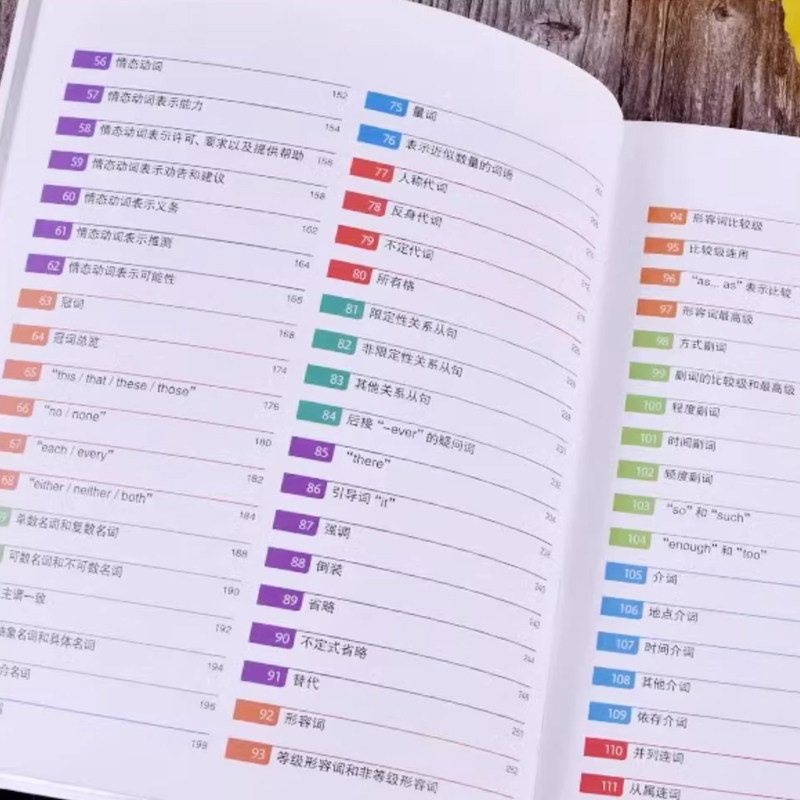 56 情态动词 152
57 情态动词表示能力 154
58 情态动词表示许可、要求以及提供帮助 156
59 情态动词表示劝告和建议 158
60 情态动词表示义务 162
61 情态动词表示推测 164
62 情态动词表示可能性 166
63 冠词 168
64 冠词总览 174
65 “this / that / these / those” 176
66 “no / none” 180
67 “each / every” 182
68 “either / neither / both” 184
单数名词和复数名词 188
可数名词和不可数名词 190
主谓一致 192
抽象名词和具体名词 194
合名词 196
198
75 量词
76 表示近似数量的词语
77 人称代词
78 反身代词
79 不定代词
80 所有格
81 限定性关系从句
82 非限定性关系从句
83 其他关系从句
84 后接“-ever”的疑问词
85 “there”
86 引导词“it”
87 强调
88 倒装
89 省略
90 不定式省略
91 替代
92 形容词
93 等级形容词和非等级形容词 252
94 形容词比较级
95 比较级连用
96 “as... as”表示比较
97 形容词最高级
98 方式副词
99 副词的比较级和最高级
100 程度副词
101 时间副词
102 频度副词
103 “so”和“such”
104 “enough”和“too”
105 介词
106 地点介词
107 时间介词
108 其他介词
109 依存介词
110 并列连词
111 从属连词